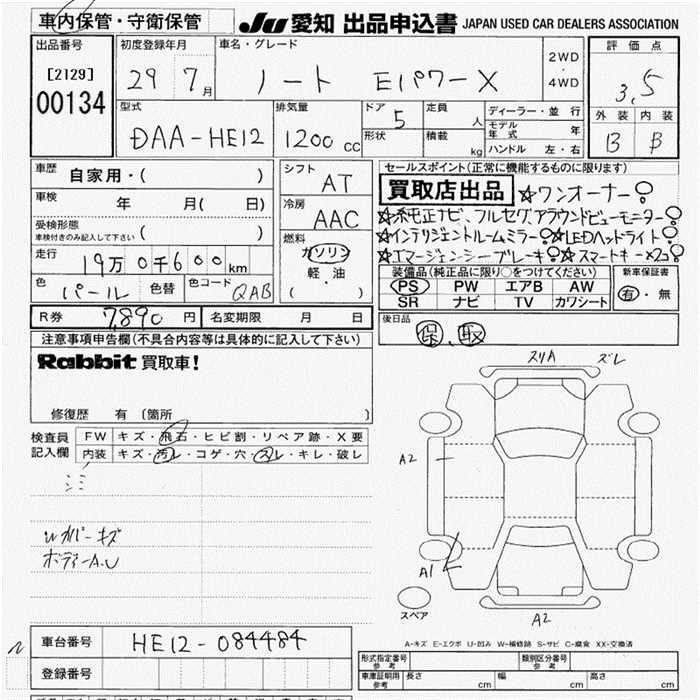 車内保管・守衛保管 JU 愛知 出品申込書 JAPAN USED CAR DEALERS ASSOCIATION
出品番号 初度登録年月 車名・グレード 評価点
[2129] 29 7月 ノート Eパワー X 2WD・4WD 3,5
00134
型式 排気量 ドア 5 定員 人 ディーラー・並行 外装 内装
DAA-HE12 1200 cc 形状 積載 kg モデル年式 年 B B
ハンドル 左・右
車歴 自家用・( ) シフト AT セールスポイント(正常に機能するものに限ります)
車検 年 月( 日) 冷房 AAC 買取店出品 ☆ワンオーナー
☆純正ナビ、フルセグ、アラウンドビューモニター
受検形態 車検付きのみ記入して下さい ( ) 燃料 ガソリン ☆インテリジェントルームミラー ☆LEDヘッドライト
☆エマージェンシーブレーキ ☆スマートキー×2コ
走行 19万0千600km 軽・油 装備品(純正品に限り○をつけてください) 新車保証書
色 パール 色替 色コード QAB ( ・ ) PS PW エアB AW 有・無
SR ナビ TV カワシート
R券 7,890円 名変期限 月 日 後日品
保、取
注意事項申告欄(不具合内容等は具体的に記入して下さい)
Rabbit 買取車!
修復歴 有 (箇所 )
検査員記入欄 FW キズ・飛石・ヒビ割・リペア跡・X要
内装 キズ・汚レ・コゲ・穴・スレ・キレ・破レ
シミ
キズ
ボディーA.U
スリA ズレ
A2
A1
A2
スペア
A-キズ E-エクボ U-凹み W-補修跡 S-サビ C-腐食 XX-交換済
車台番号 HE12-084484
登録番号
形式指定番号 参考 類別区分番号 参考
車庫証明用 参考 長さ cm 幅 cm 高さ cm